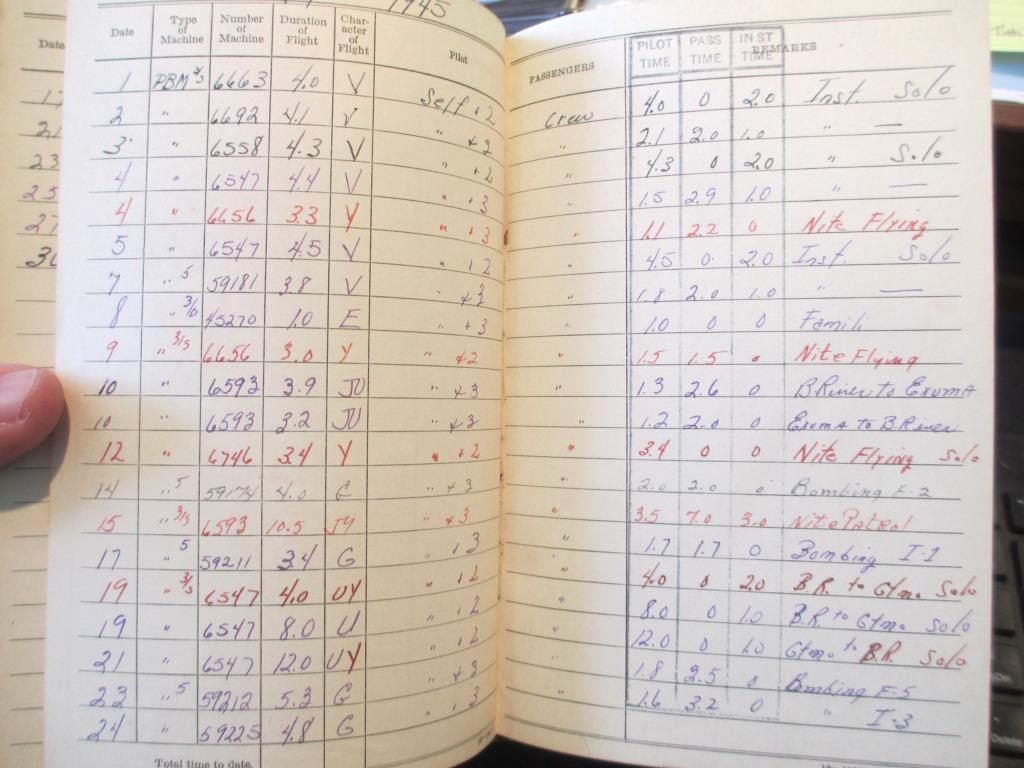 1945
Date Type of Machine Number of Machine Duration of Flight Char-acter of Flight Pilot PASSENGERS PILOT TIME PASS TIME INST TIME REMARKS
1 PBM 3/S 6663 4.0 V Self +2 Crew 4.0 0 2.0 Inst. Solo
2 " 6692 4.1 V " +2 " 2.1 2.0 1.0 " —
3 " 6558 4.3 V " +2 " 4.3 0 2.0 " Solo
4 " 6547 4.4 V " +3 " 1.5 2.9 1.0 " —
4 " 6656 3.3 Y " +3 " 1.1 2.2 0 Nite Flying
5 " 6547 4.5 V " +2 " 4.5 0 2.0 Inst. Solo
7 " 5 59181 3.8 V " +2 " 1.8 2.0 1.0 " —
8 " 3/6 45270 1.0 E " +3 " 1.0 0 0 Famili
9 " 3/S 6656 3.0 Y " +2 " 1.5 1.5 0 Nite Flying
10 " 6593 3.9 JU " +3 " 1.3 2.6 0 B River to Exuma
10 " 6593 3.2 JU " +3 " 1.2 2.0 0 Exuma to B. River
12 " 6746 3.4 Y " +2 " 3.4 0 0 Nite Flying Solo
14 " 5 59174 4.0 G " +3 " 2.0 2.0 0 Bombing F-2
15 " 3/S 6593 10.5 JY " +3 " 3.5 7.0 3.0 Nite Patrol
17 " 5 59211 3.4 G " +3 " 1.7 1.7 0 Bombing I-1
19 " 3/S 6547 4.0 UY " +2 " 4.0 0 2.0 B.R. to Gtmo Solo
19 " 6547 8.0 U " +2 " 8.0 0 1.0 B.R to Gtmo Solo
21 " 6547 12.0 UY " +2 " 12.0 0 1.0 Gtmo to B.R. Solo
23 " 5 59212 5.3 G " +3 " 1.8 3.5 0 Bombing F-5
24 " 59225 4.8 G " +3 1.6 3.2 0 " I-3
Total time to date.
Date
17
21
23
25
27
30
Delete